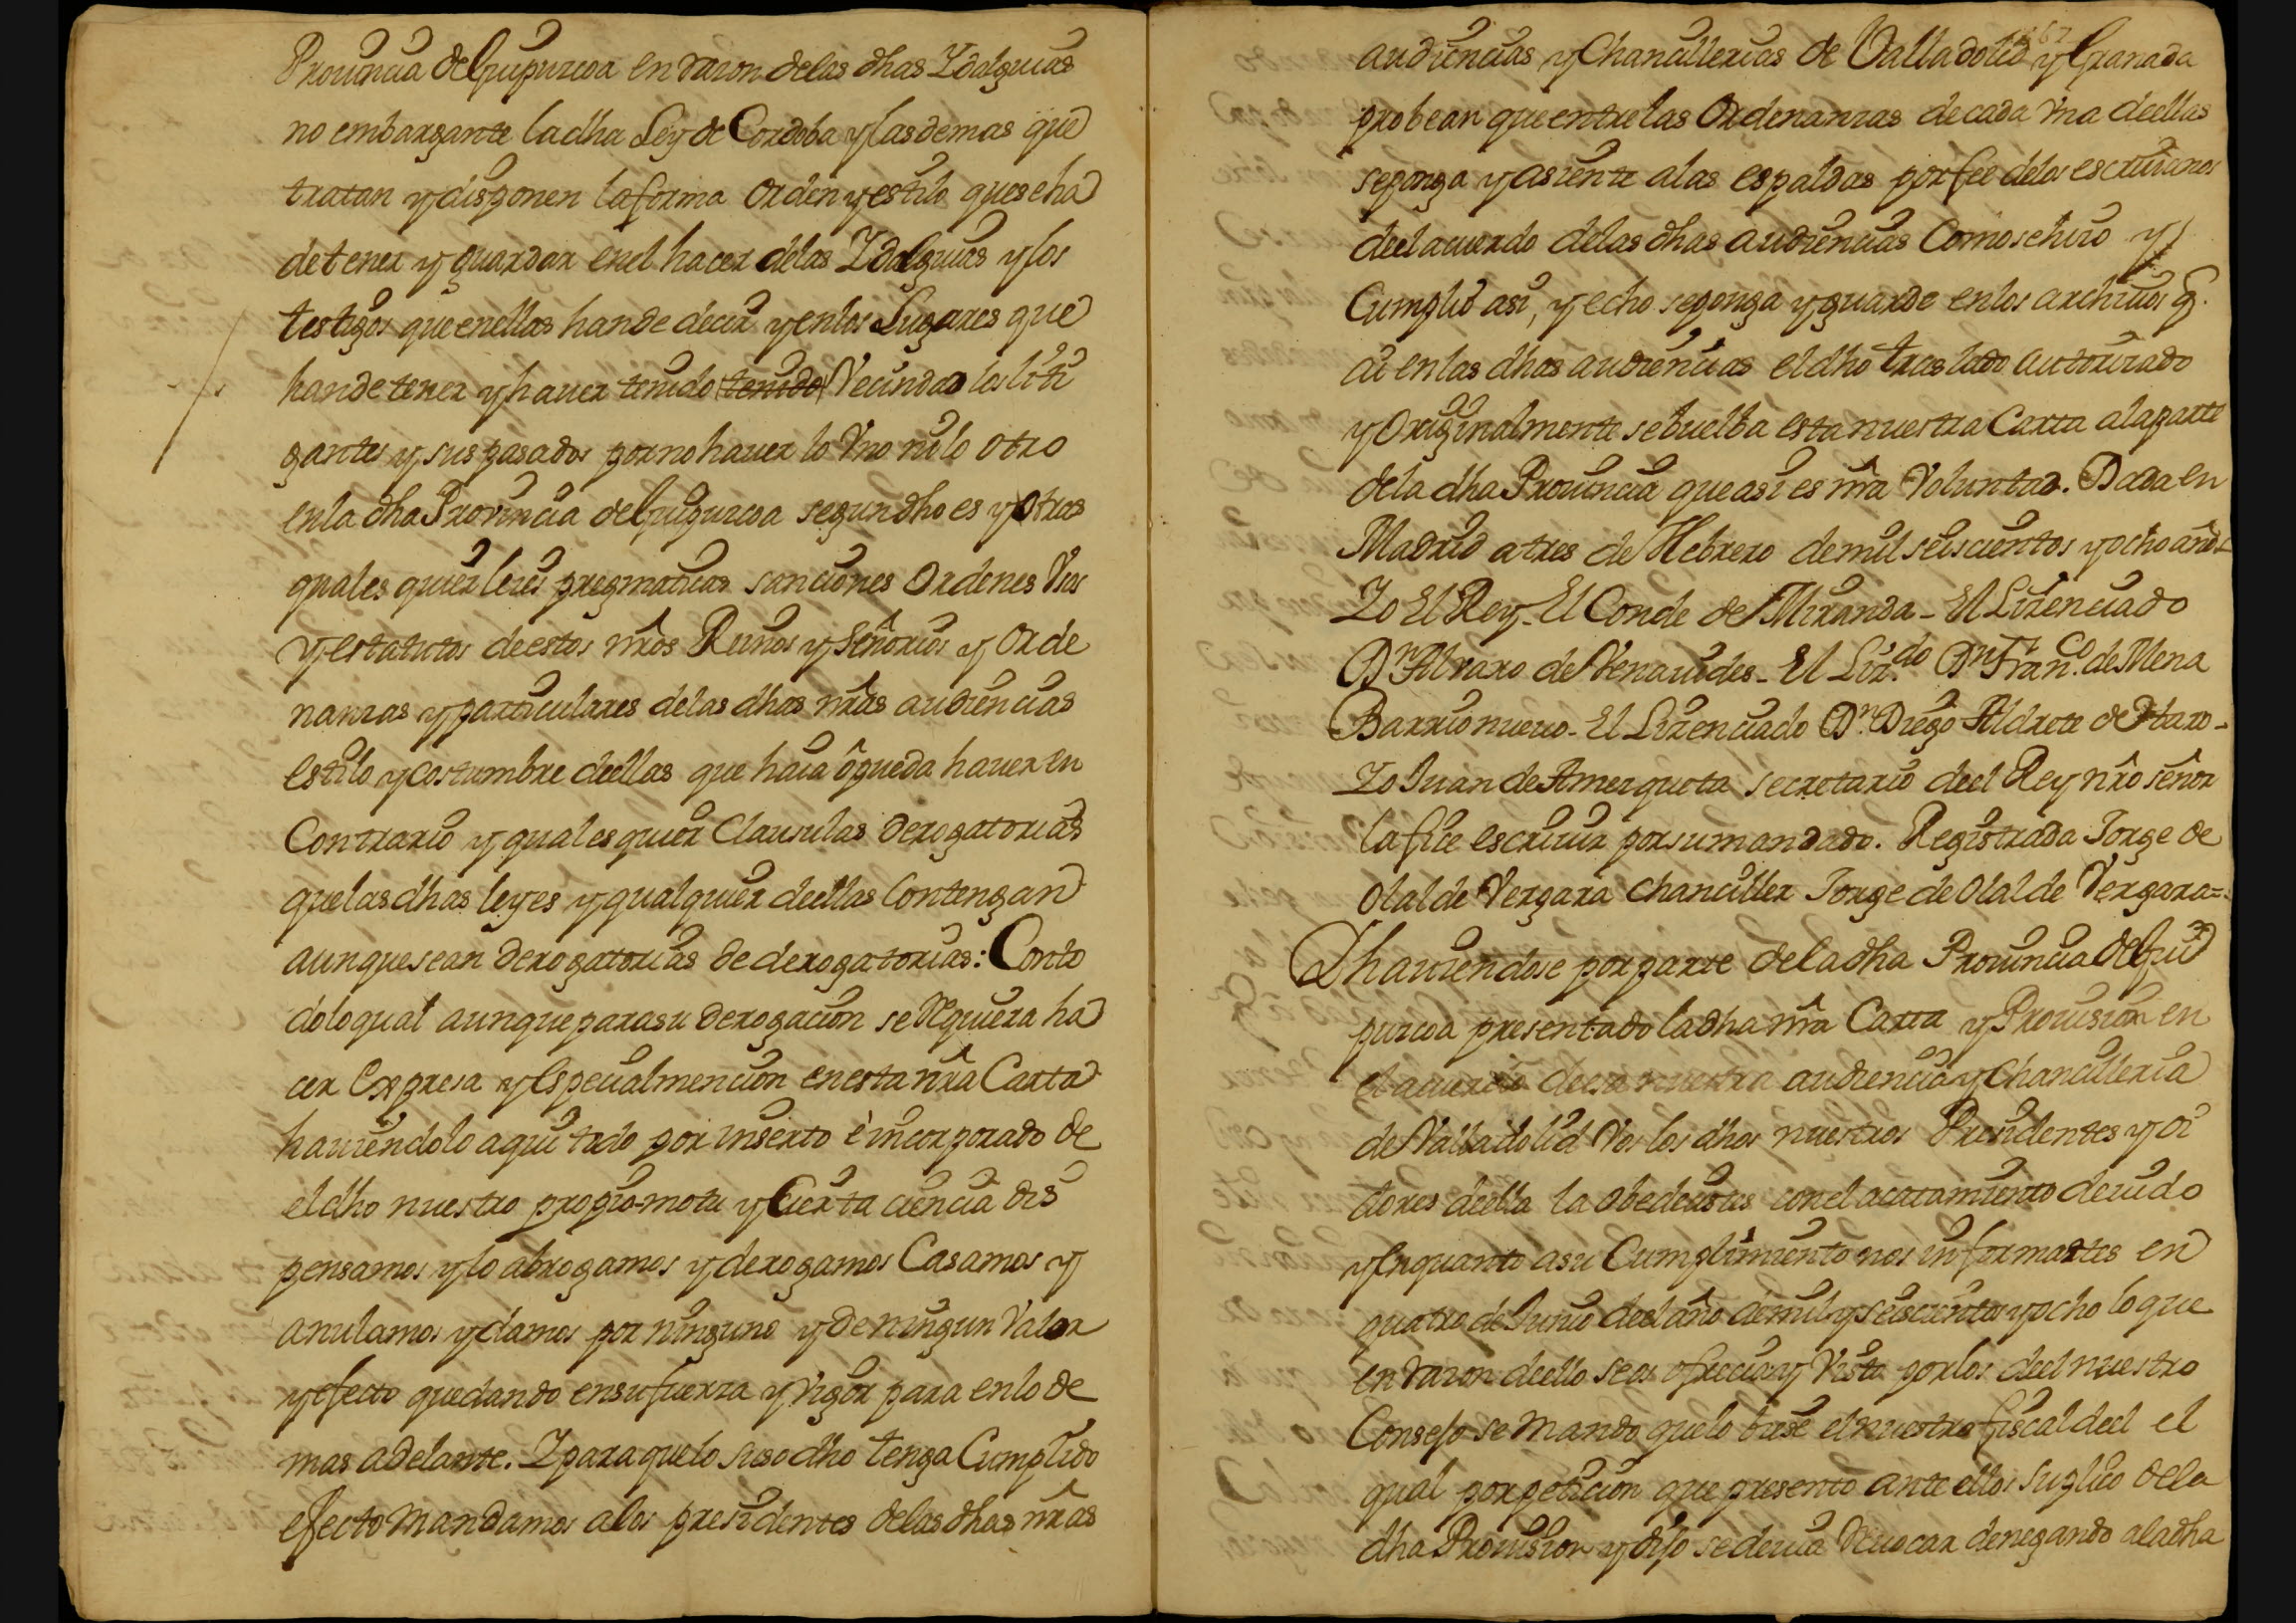 Prouincia de Guipuzcoa en razon de las dhas Ydalguias
no embargante la dha Ley de Cordoba y las demas que
tratan y disponen la forma orden y estilo que se ha
de tener y guardar en el hacer de las Ydalguias y los
testigos que en ellas han de decir y en los Lugares que
han de tener y hauer tenido tenido Vecindad los liti
gantes y sus pasados por no hauer lo Vno ni lo otro
en la dha Prouincia de Guipuzcoa segun dho es y otras
quales quier leies pregmaticas sanciones Ordenes Vsos
y estatutos de estos nr̃os Reinos y Señorios y Orde
nanzas y particulares de las dhas nr̃as audiencias
estilo y costumbre de ellas que haia ô pueda hauer en
Contrario y quales quier Clausulas derogatorias
que las dhas leyes y qualquier de ellas Contengan
aunque sean derogatorias de derogatorias: Con to
do lo qual aunque para su derogacion se requiera ha
cer Expresa y Especial mencion en esta nr̃a Carta
hauiendolo aqui todo por inserto è incorporado de
el dho nuestro propio-motu y Cierta ciencia dis
pensamos y lo abrogamos y derogamos Casamos y
anulamos y damos por ninguno y de ningun Valor
y efecto quedando en su fuerza y vigor para en lo de
mas adelante. Y para que lo suso dho tenga Cumplido
efecto mandamos a los presidentes de las dhas nr̃as
audiencias y Chancillerias de Valladolid y Granada
probean que entre las Ordenanzas de cada Vna de ellas
se ponga y asiente a las espaldas por fee de los escriuanos
de el acuerdo de las dhas audiencias Como se hizo y
Cumplio asi, y echo se ponga y guarde en los archiuos q.
ai en las dhas audiencias el dho traslado autorizado
y Originalmente se buelba esta nuestra Carta a la parte
de la dha Prouincia que asi es nr̃a Voluntad. Dada en
Madrid a tres de Hebrero de mil seiscientos y ocho años
Yo El Rey - El Conde de Miranda - El Lizenciado
Dn Alvaro de Venauides - El Liz.do Dn Fran.co de Mena
Barrionueuo - El Lizenciado Dn. Diego Aldrete de Haro -
Yo Juan de Amezqueta secretario de el Rey nr̃o señor
la fice escriuir por su mandado. Registrada Jorge de
Olal de Vergara Chanciller Jorge de Olal de Vergara =
Y hauiendose por parte de la dha Prouincia de Gui
puzcoa presentado la dha nr̃a Carta y Prouision en
el acuerdo de esa nuestra audiencia y Chancilleria
de Valladolid Vos los dhos nuestros Presidentes y oi
dores de ella la obedecistes con el acatamiento deuido
y en quanto a su Cumplimiento nos informastes en
quatro de Junio de el año de mil y seiscientos y ocho lo que
en razon de ello se os ofrecia y Visto por los de el nuestro
Consejo se mando que lo biese el nuestro fiscal de el el
qual por peticion que presento ante ellos suplico de la
dha Prouision y dijo se deuia reuocar denegando a la dha